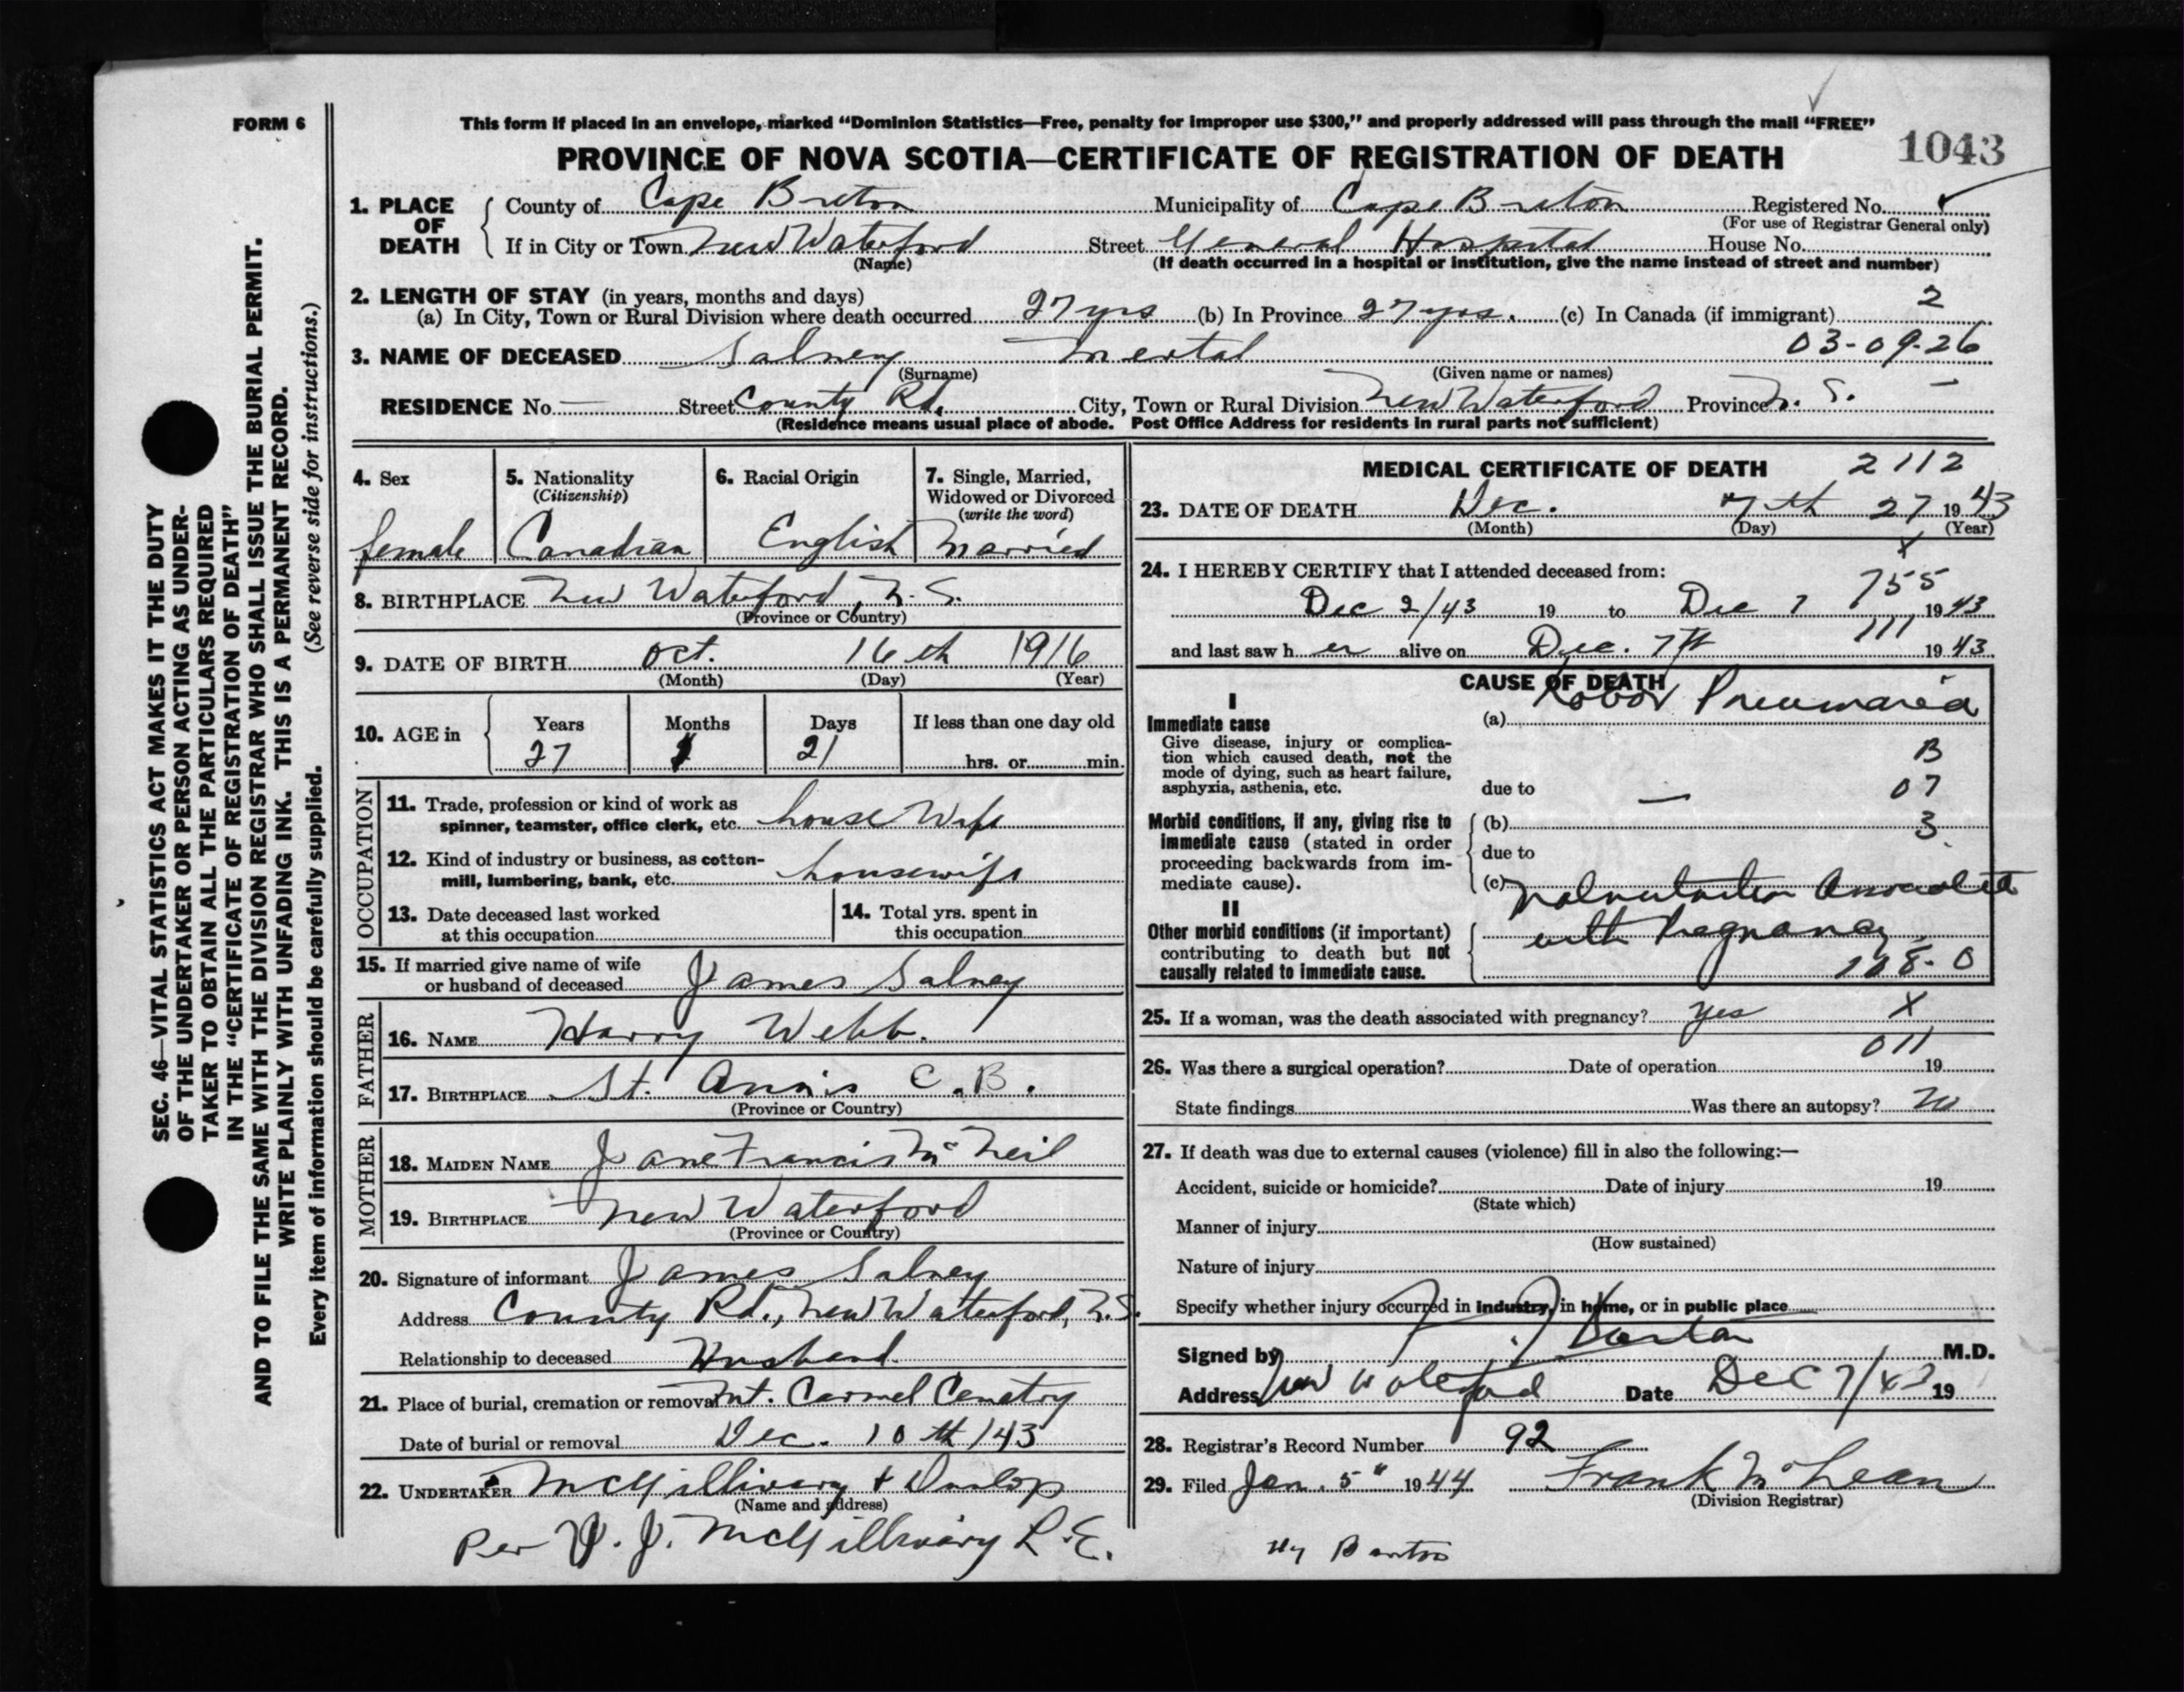 FORM 6
This form if placed in an envelope, marked "Dominion Statistics—Free, penalty for improper use $300," and properly addressed will pass through the mail "FREE"
PROVINCE OF NOVA SCOTIA—CERTIFICATE OF REGISTRATION OF DEATH
1043
SEC. 46—VITAL STATISTICS ACT MAKES IT THE DUTY
OF THE UNDERTAKER OR PERSON ACTING AS UNDER-
TAKER TO OBTAIN ALL THE PARTICULARS REQUIRED
IN THE "CERTIFICATE OF REGISTRATION OF DEATH"
AND TO FILE THE SAME WITH THE DIVISION REGISTRAR WHO SHALL ISSUE THE BURIAL PERMIT.
WRITE PLAINLY WITH UNFADING INK. THIS IS A PERMANENT RECORD.
Every item of information should be carefully supplied. (See reverse side for instructions.)
1. PLACE OF DEATH
County of Cape Breton Municipality of Cape Breton Registered No.
(For use of Registrar General only)
If in City or Town New Waterford Street General Hospital House No.
(Name) (If death occurred in a hospital or institution, give the name instead of street and number)
2. LENGTH OF STAY (in years, months and days)
(a) In City, Town or Rural Division where death occurred 27 yrs (b) In Province 27 yrs. (c) In Canada (if immigrant) 2
3. NAME OF DECEASED Salney Mertal 03-09-26
(Surname) (Given name or names)
RESIDENCE No. — Street County Rd. City, Town or Rural Division New Waterford Province N. S. —
(Residence means usual place of abode. Post Office Address for residents in rural parts not sufficient)
4. Sex
female
5. Nationality
(Citizenship)
Canadian
6. Racial Origin
English
7. Single, Married,
Widowed or Divorced
(write the word)
Married
8. BIRTHPLACE New Waterford, N. S.
(Province or Country)
9. DATE OF BIRTH Oct. 16th 1916
(Month) (Day) (Year)
10. AGE in
Years Months Days If less than one day old
27 1 21 hrs. or min.
OCCUPATION
11. Trade, profession or kind of work as
spinner, teamster, office clerk, etc. house Wife
12. Kind of industry or business, as cotton-
mill, lumbering, bank, etc. housewife
13. Date deceased last worked
at this occupation
14. Total yrs. spent in
this occupation
15. If married give name of wife
or husband of deceased James Salney
FATHER
16. NAME Harry Webb.
17. BIRTHPLACE St. Ann's C.B.
(Province or Country)
MOTHER
18. MAIDEN NAME Jane Francis McNeil
19. BIRTHPLACE New Waterford
(Province or Country)
20. Signature of informant James Salney
Address County Rd., New Waterford, N.S.
Relationship to deceased Husband.
21. Place of burial, cremation or removal Mt. Carmel Cemetry
Date of burial or removal Dec. 10th/43
22. UNDERTAKER McGillivary & Dunlop
(Name and address)
Per J. McGillivary L.E.
MEDICAL CERTIFICATE OF DEATH 2112
23. DATE OF DEATH Dec. 7th 27 1943
(Month) (Day) (Year)
x
24. I HEREBY CERTIFY that I attended deceased from:
755
Dec 2/43 19 to Dec 7 1943
111
and last saw her alive on Dec. 7th 1943
CAUSE OF DEATH
I
Immediate cause
Give disease, injury or complica-
tion which caused death, not the
mode of dying, such as heart failure,
asphyxia, asthenia, etc.
(a) Lobar Pneumonia
B
due to — 07
Morbid conditions, if any, giving rise to
immediate cause (stated in order
proceeding backwards from im-
mediate cause).
(b) 3
due to
(c)
II
Other morbid conditions (if important)
contributing to death but not
causally related to immediate cause.
Malnutrition Associated
with Pregnancy
108-0
25. If a woman, was the death associated with pregnancy? Yes X
011
26. Was there a surgical operation? Date of operation 19
State findings Was there an autopsy? No
27. If death was due to external causes (violence) fill in also the following:—
Accident, suicide or homicide? Date of injury 19
(State which)
Manner of injury
(How sustained)
Nature of injury
Specify whether injury occurred in industry, in home, or in public place
Signed by M.D.
Address New Waterford Date Dec 7/43 19
28. Registrar's Record Number 92
29. Filed Jan. 5" 1944 Frank McLean
(Division Registrar)